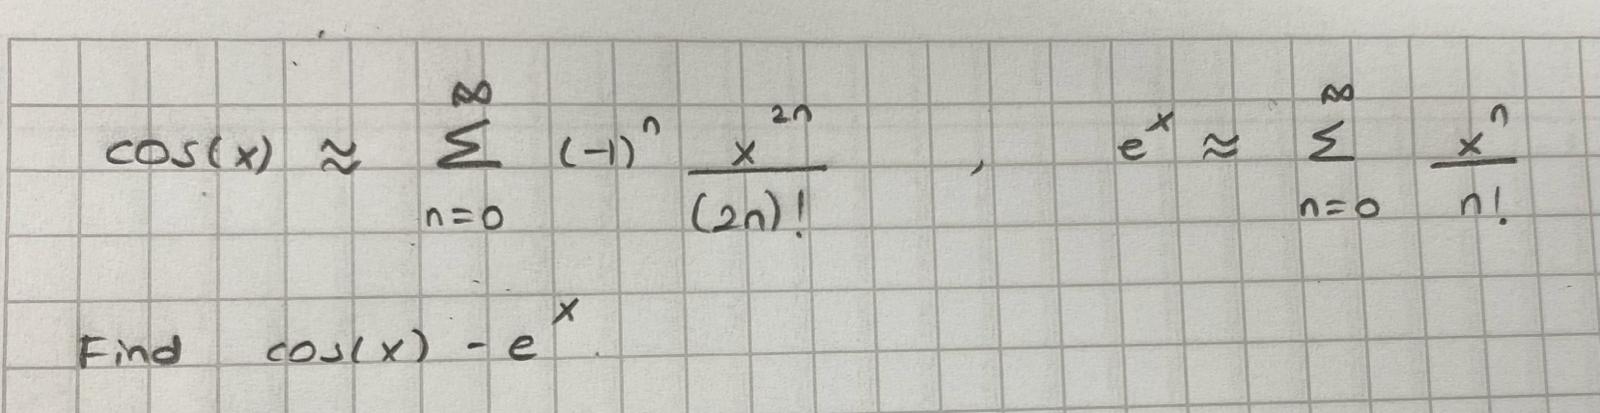 cos(x) ≈ ∞ Σ n=0 (-1)^n x^2n / (2n)! , e^x ≈ ∞ Σ n=0 x^n / n!
Find cos(x) - e^x.